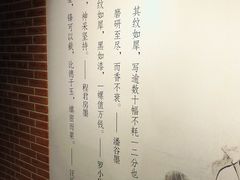 其纹如犀，写逾数十幅不耗一二分也
磨研至尽，而香不衰。——潘谷墨
纹如犀，黑如漆，一螺值万钱。——罗小
，神采坚持。——程君房墨
，锋可以截，比德于玉，缜密而栗。——汪